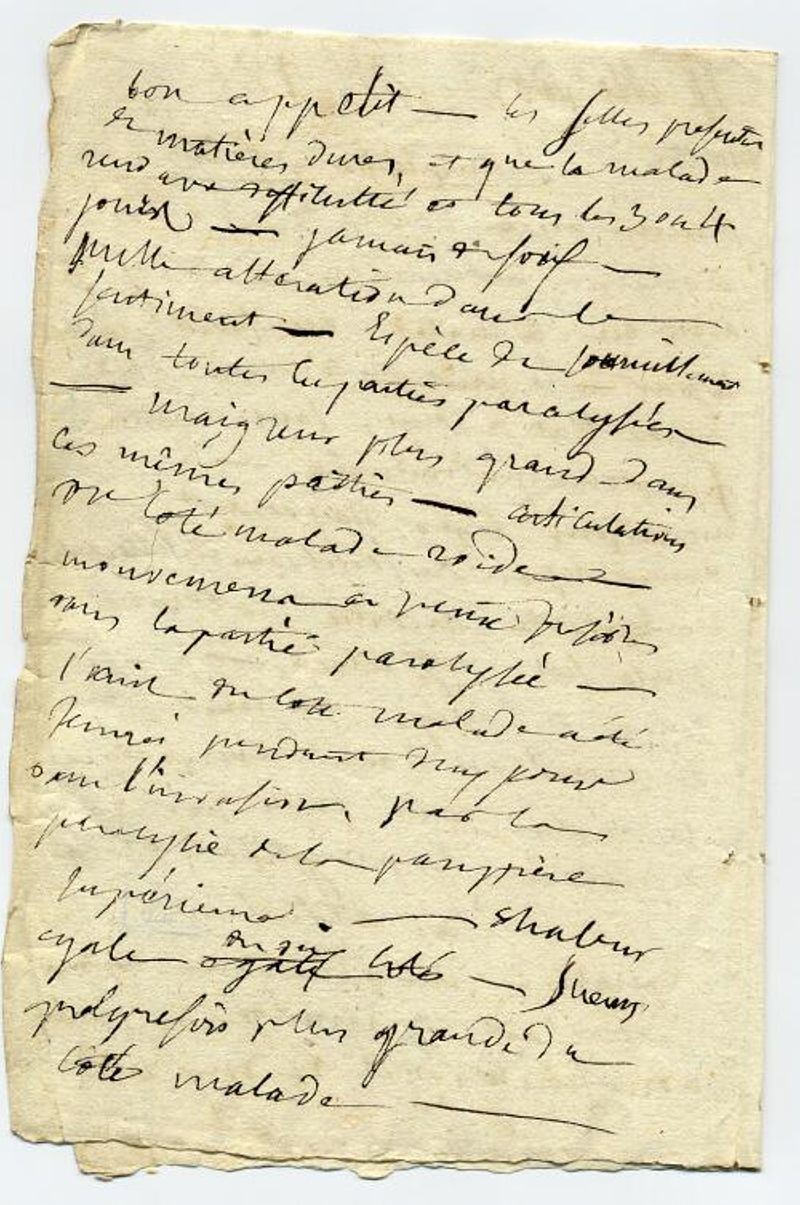 bon appetit — les selles presentes
de matières dures, et que la malade
rend avec difficulté tous les 3 ou 4
jours — jamais de soif —
nulle altération dans le
sentiment — Espèce de fourmillement
dans toutes les parties paralysées
— maigreur plus grand dans
ces mêmes parties — articulations
du coté malade roides —
mouvemens à peine
dans la partie paralysée —
l'œil du coté malade a été
fermé pendant dix jours
dans l'invasion, par la
paralysie de la paupière
supérieure — chaleur
egale des deux cotés — sueurs
quelquefois plus grande du
coté malade —